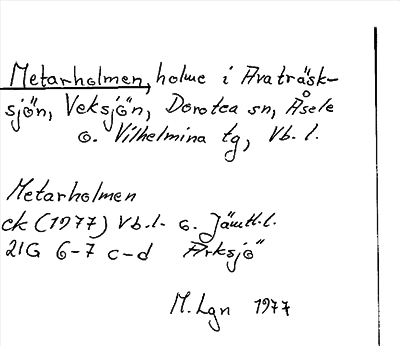 Metarholmen, holme i Avaträsk-
sjön, Veksjön, Dorotea sn, Åsele
o. Vilhelmina tg, Vb. l.
Metarholmen
ck (1977) Vb.l. o. Jämtl.l.
21G 6-7 c-d Arksjö
M. Lgn 1977